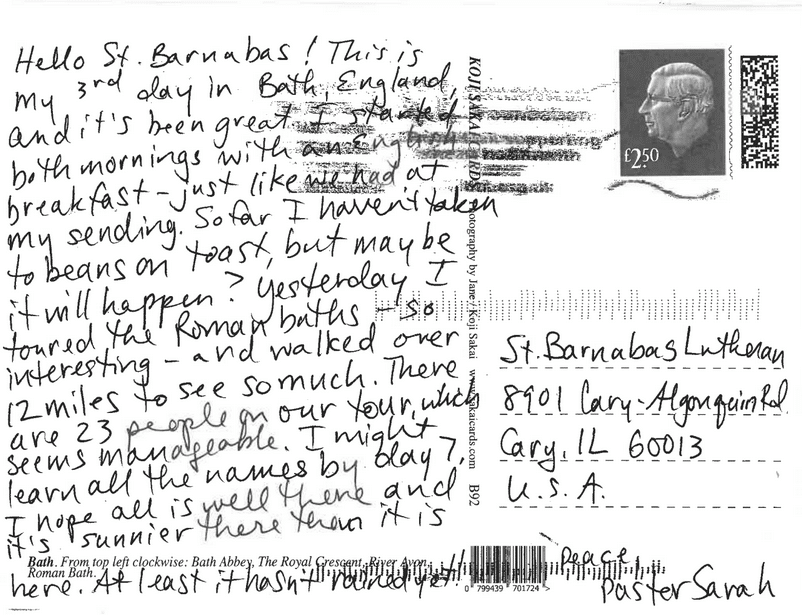 Hello St. Barnabas! This is
my 3rd day in Bath, England,
and it's been great. I started
both mornings with an English
breakfast - just like we had at
my sending. So far I haven't taken
to beans on toast, but maybe
it will happen? Yesterday I
toured the Roman baths - so
interesting - and walked over
12 miles to see so much. There
are 23 people on our tour, which
seems manageable. I might
learn all the names by day 7.
I hope all is well there and
it's sunnier there than it is
here. At least it hasn't rained yet!
Peace,
Pastor Sarah
Bath. From top left clockwise: Bath Abbey, The Royal Crescent, River Avon,
Roman Bath.
KOJI SAKAI CARDS Photography by Jane / Koji Sakai www.sakaicards.com B92
£2.50
St. Barnabas Lutheran
8901 Cary-Algonquin Rd
Cary, IL 60013
U.S.A.
0 799439 701724 >